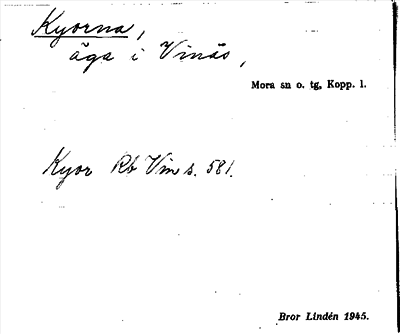 Kyorna,
äga i Vinäs,
Mora sn o. tg, Kopp. l.
Kyor Rb Vin s. 581.
Bror Lindén 1945.